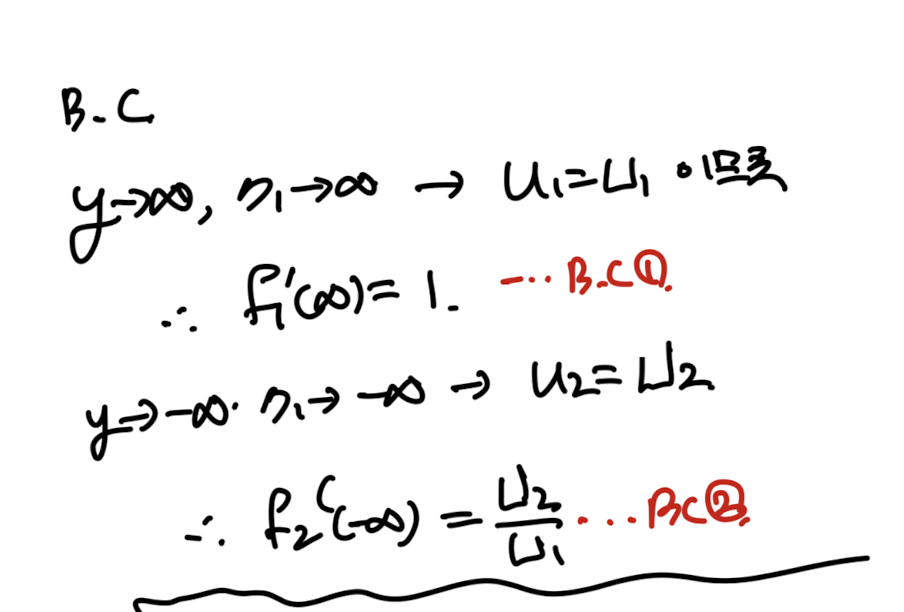 B.C
y→∞, η₁→∞ → u₁=U₁ •
∴ f₁'(∞)= 1. ... B.C①.
y→-∞. η₁→-∞ → u₂=U₂
∴ f₂'(-∞) = U₂/U₁ ... BC②.